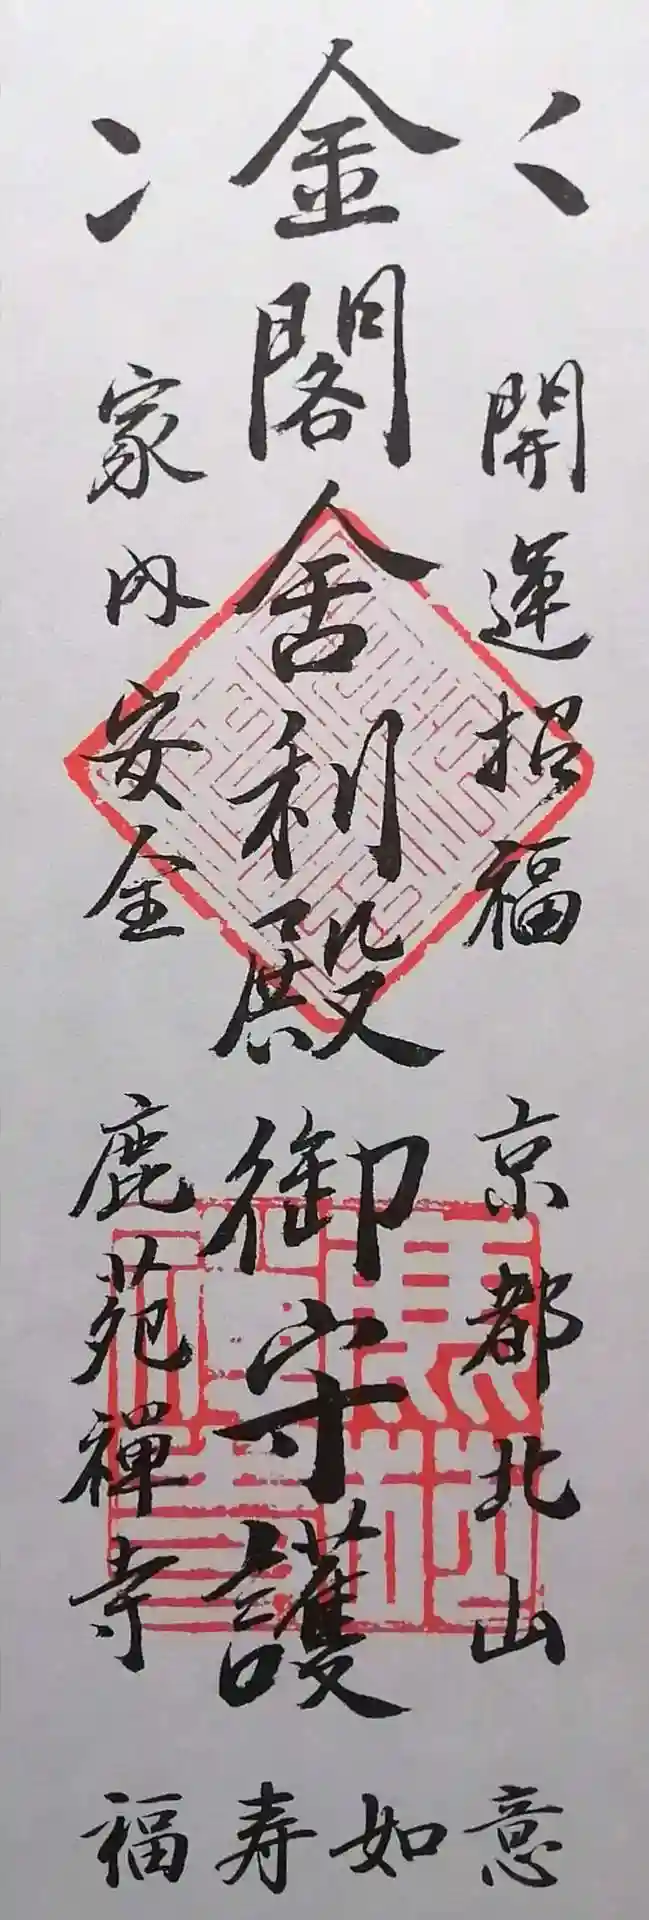 開運招福
京都北山
金閣舍利殿
御守護
家内安全
鹿苑禅寺
如意
福寿